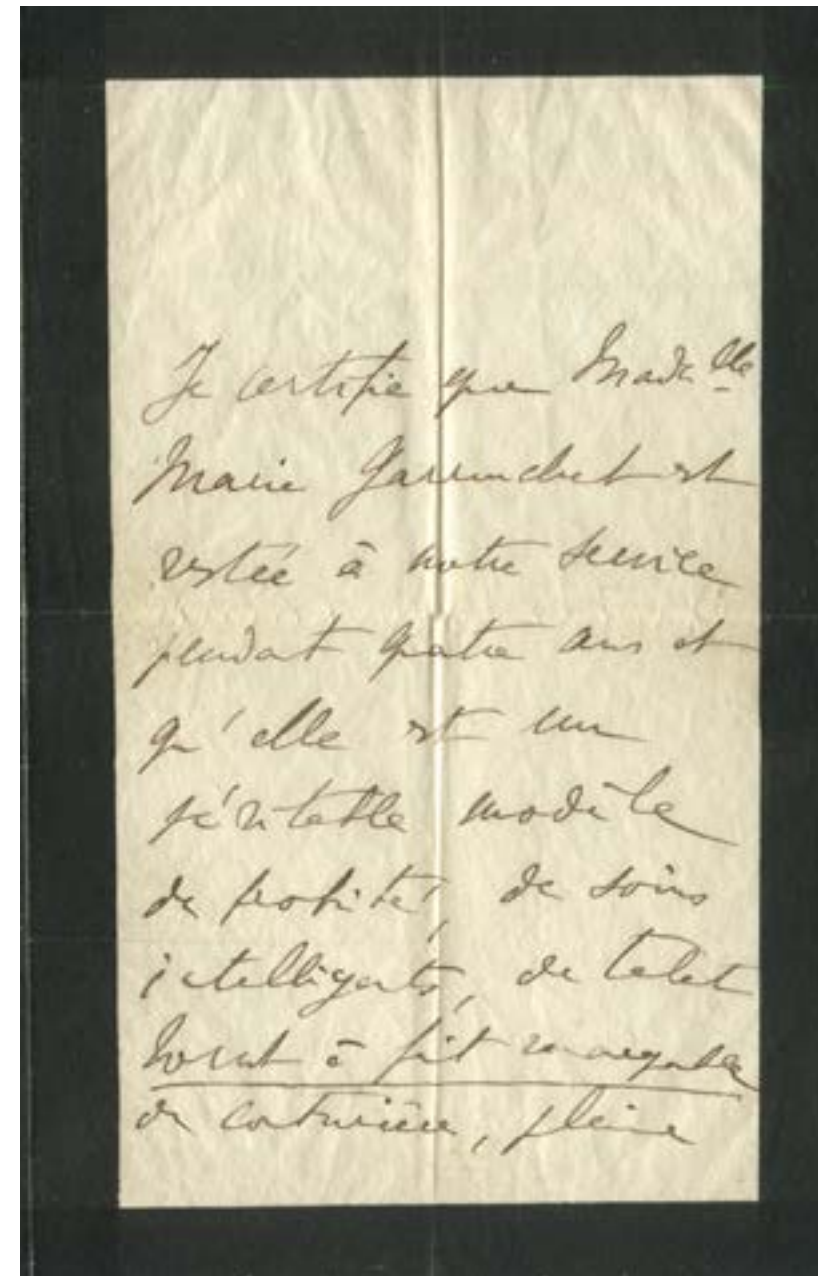 Je certifie que Made lle
Marie est
restée à notre service
pendant quatre ans et
qu'elle est un
véritable modèle
de probité, de soins
intelligents, de talent
tout à fait remarquable
de couturière, pleine